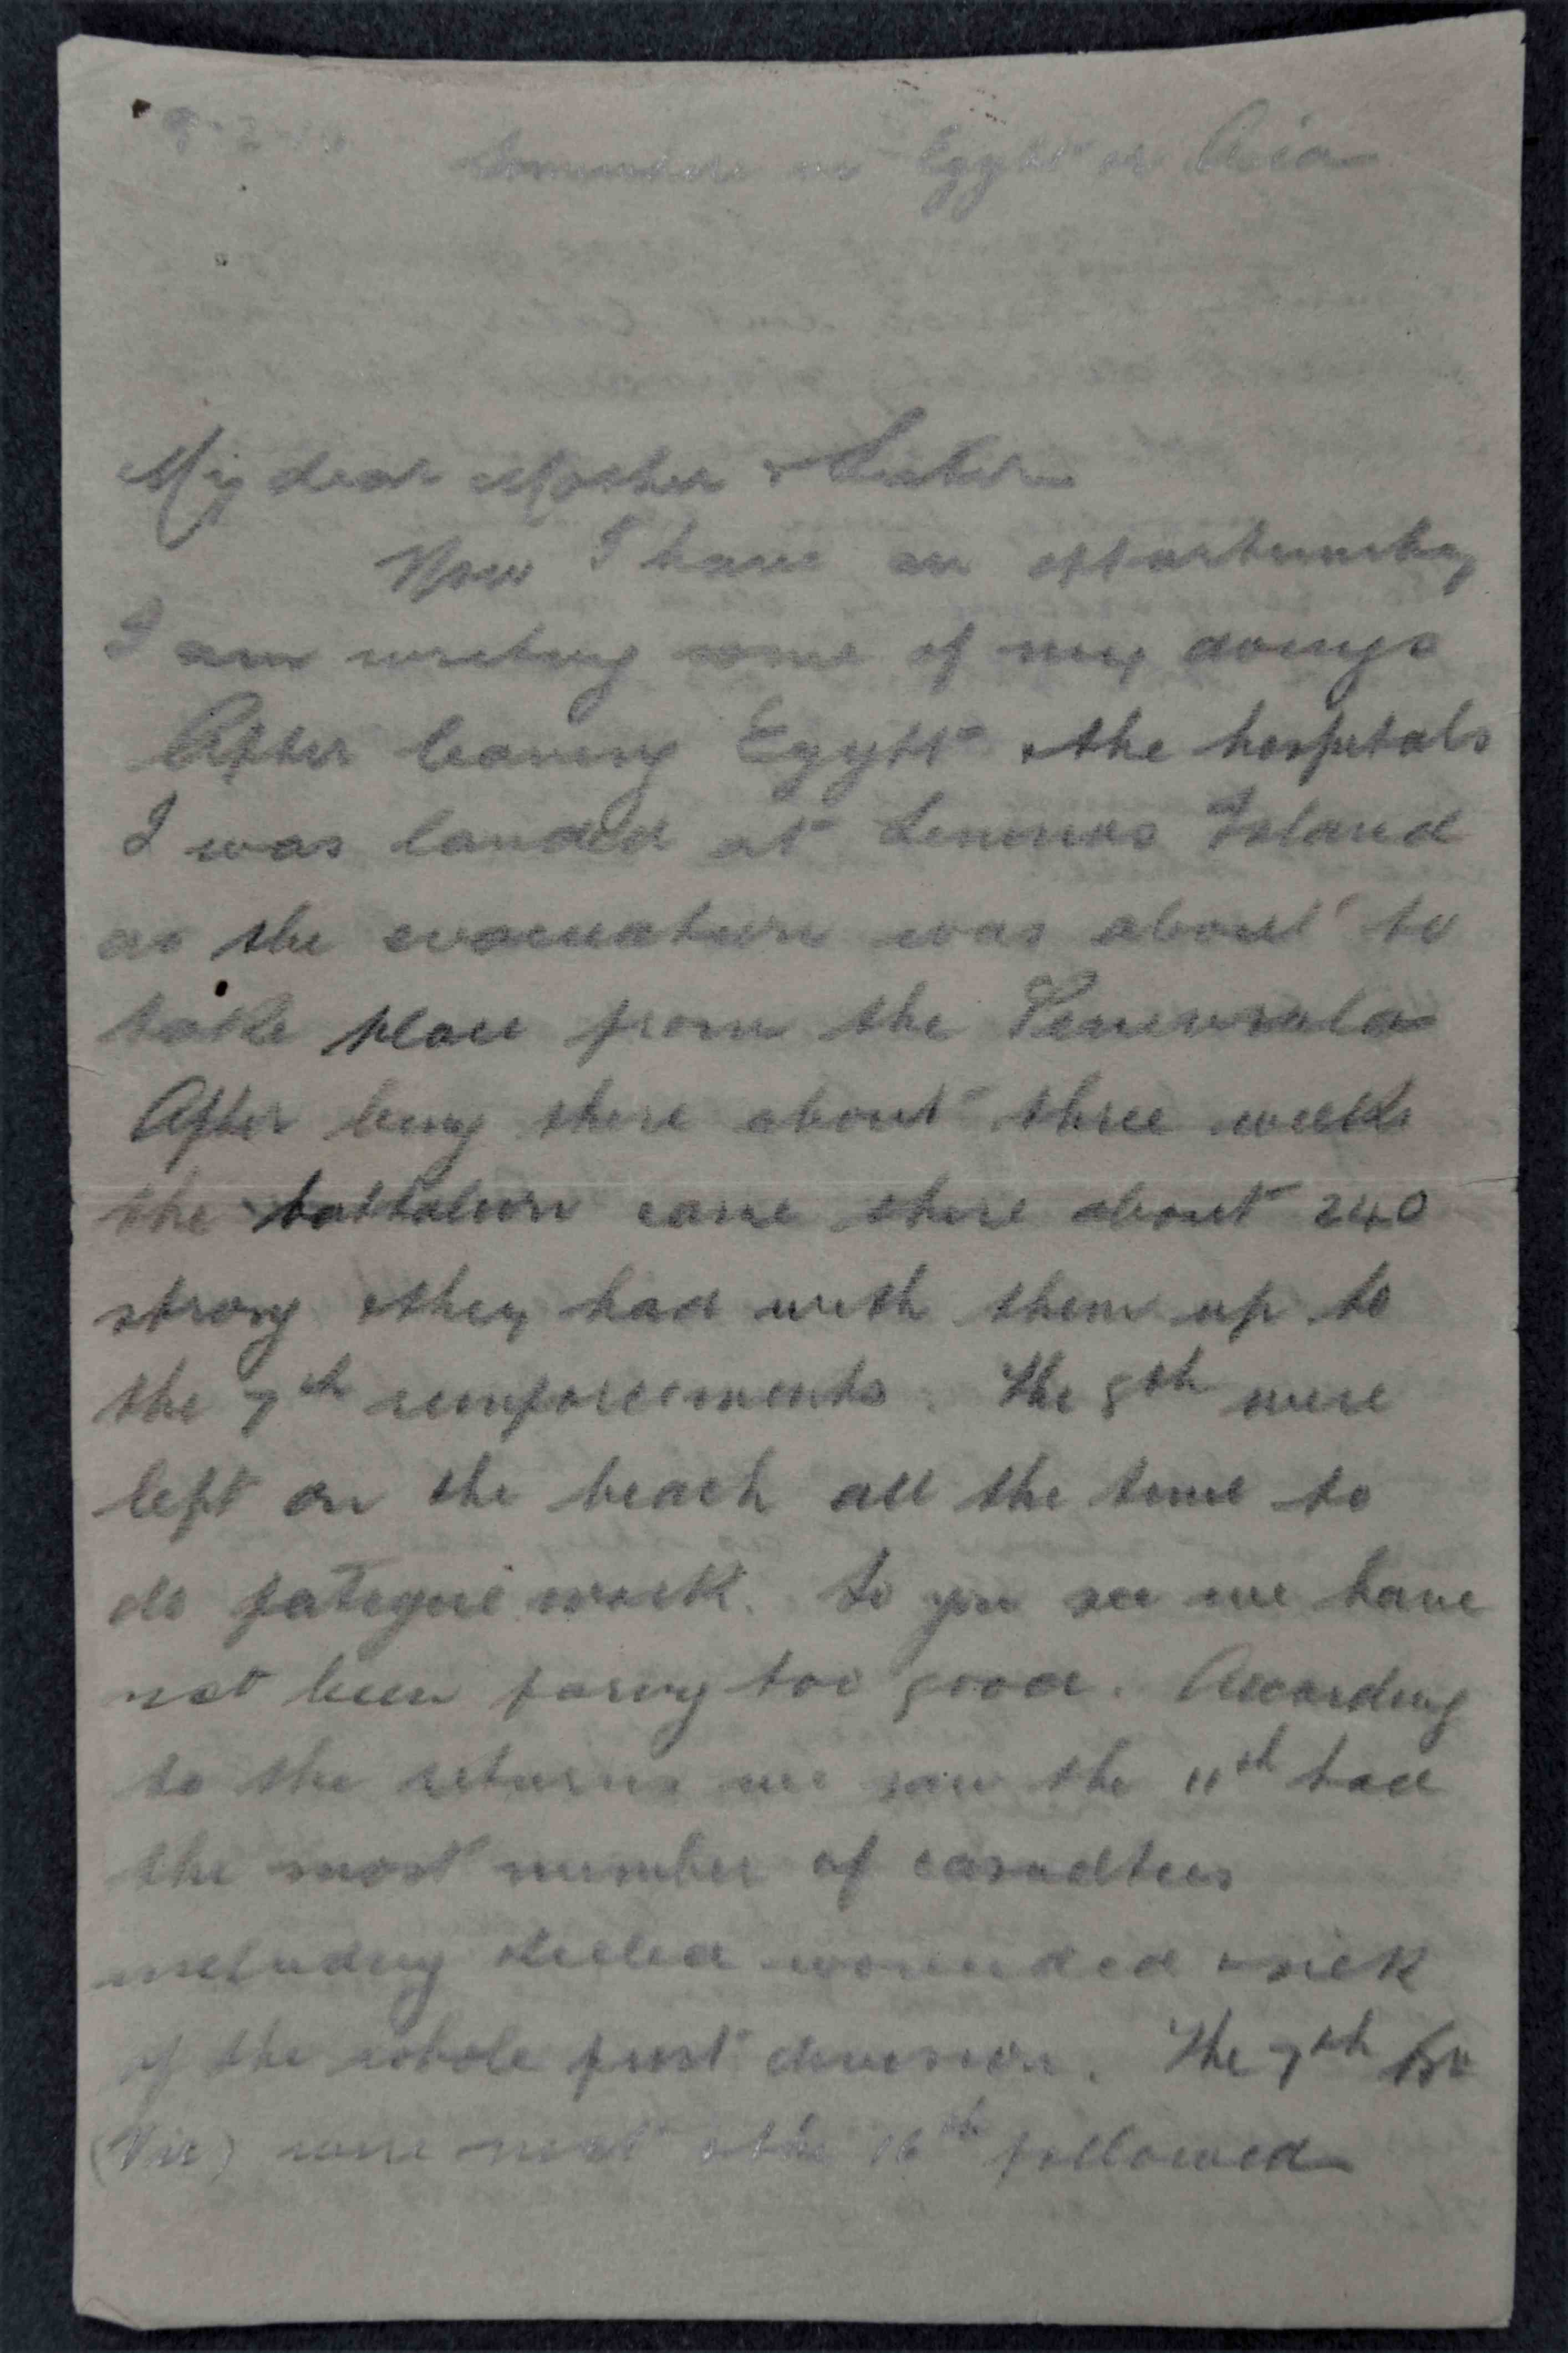 Somewhere in Egypt or Asia
My dear Mother & Sister
Now I have an opportunity
I am writing some of my doings
After leaving Egypt & the hospitals
I was landed at Lemnos Island
as the evacuation was about to
take place from the Peninsula
After being there about three weeks
the battalion came there about 240
strong & they had with them up to
the 7th reinforcements. The 8th were
left on the beach all the time to
do fatigue work. So you see we have
not been faring too good. According
to the returns we saw the 11th had
the most number of casualties
including killed wounded & sick
of the whole first division. The 7th Bn
(Vic) were next & the 16th followed